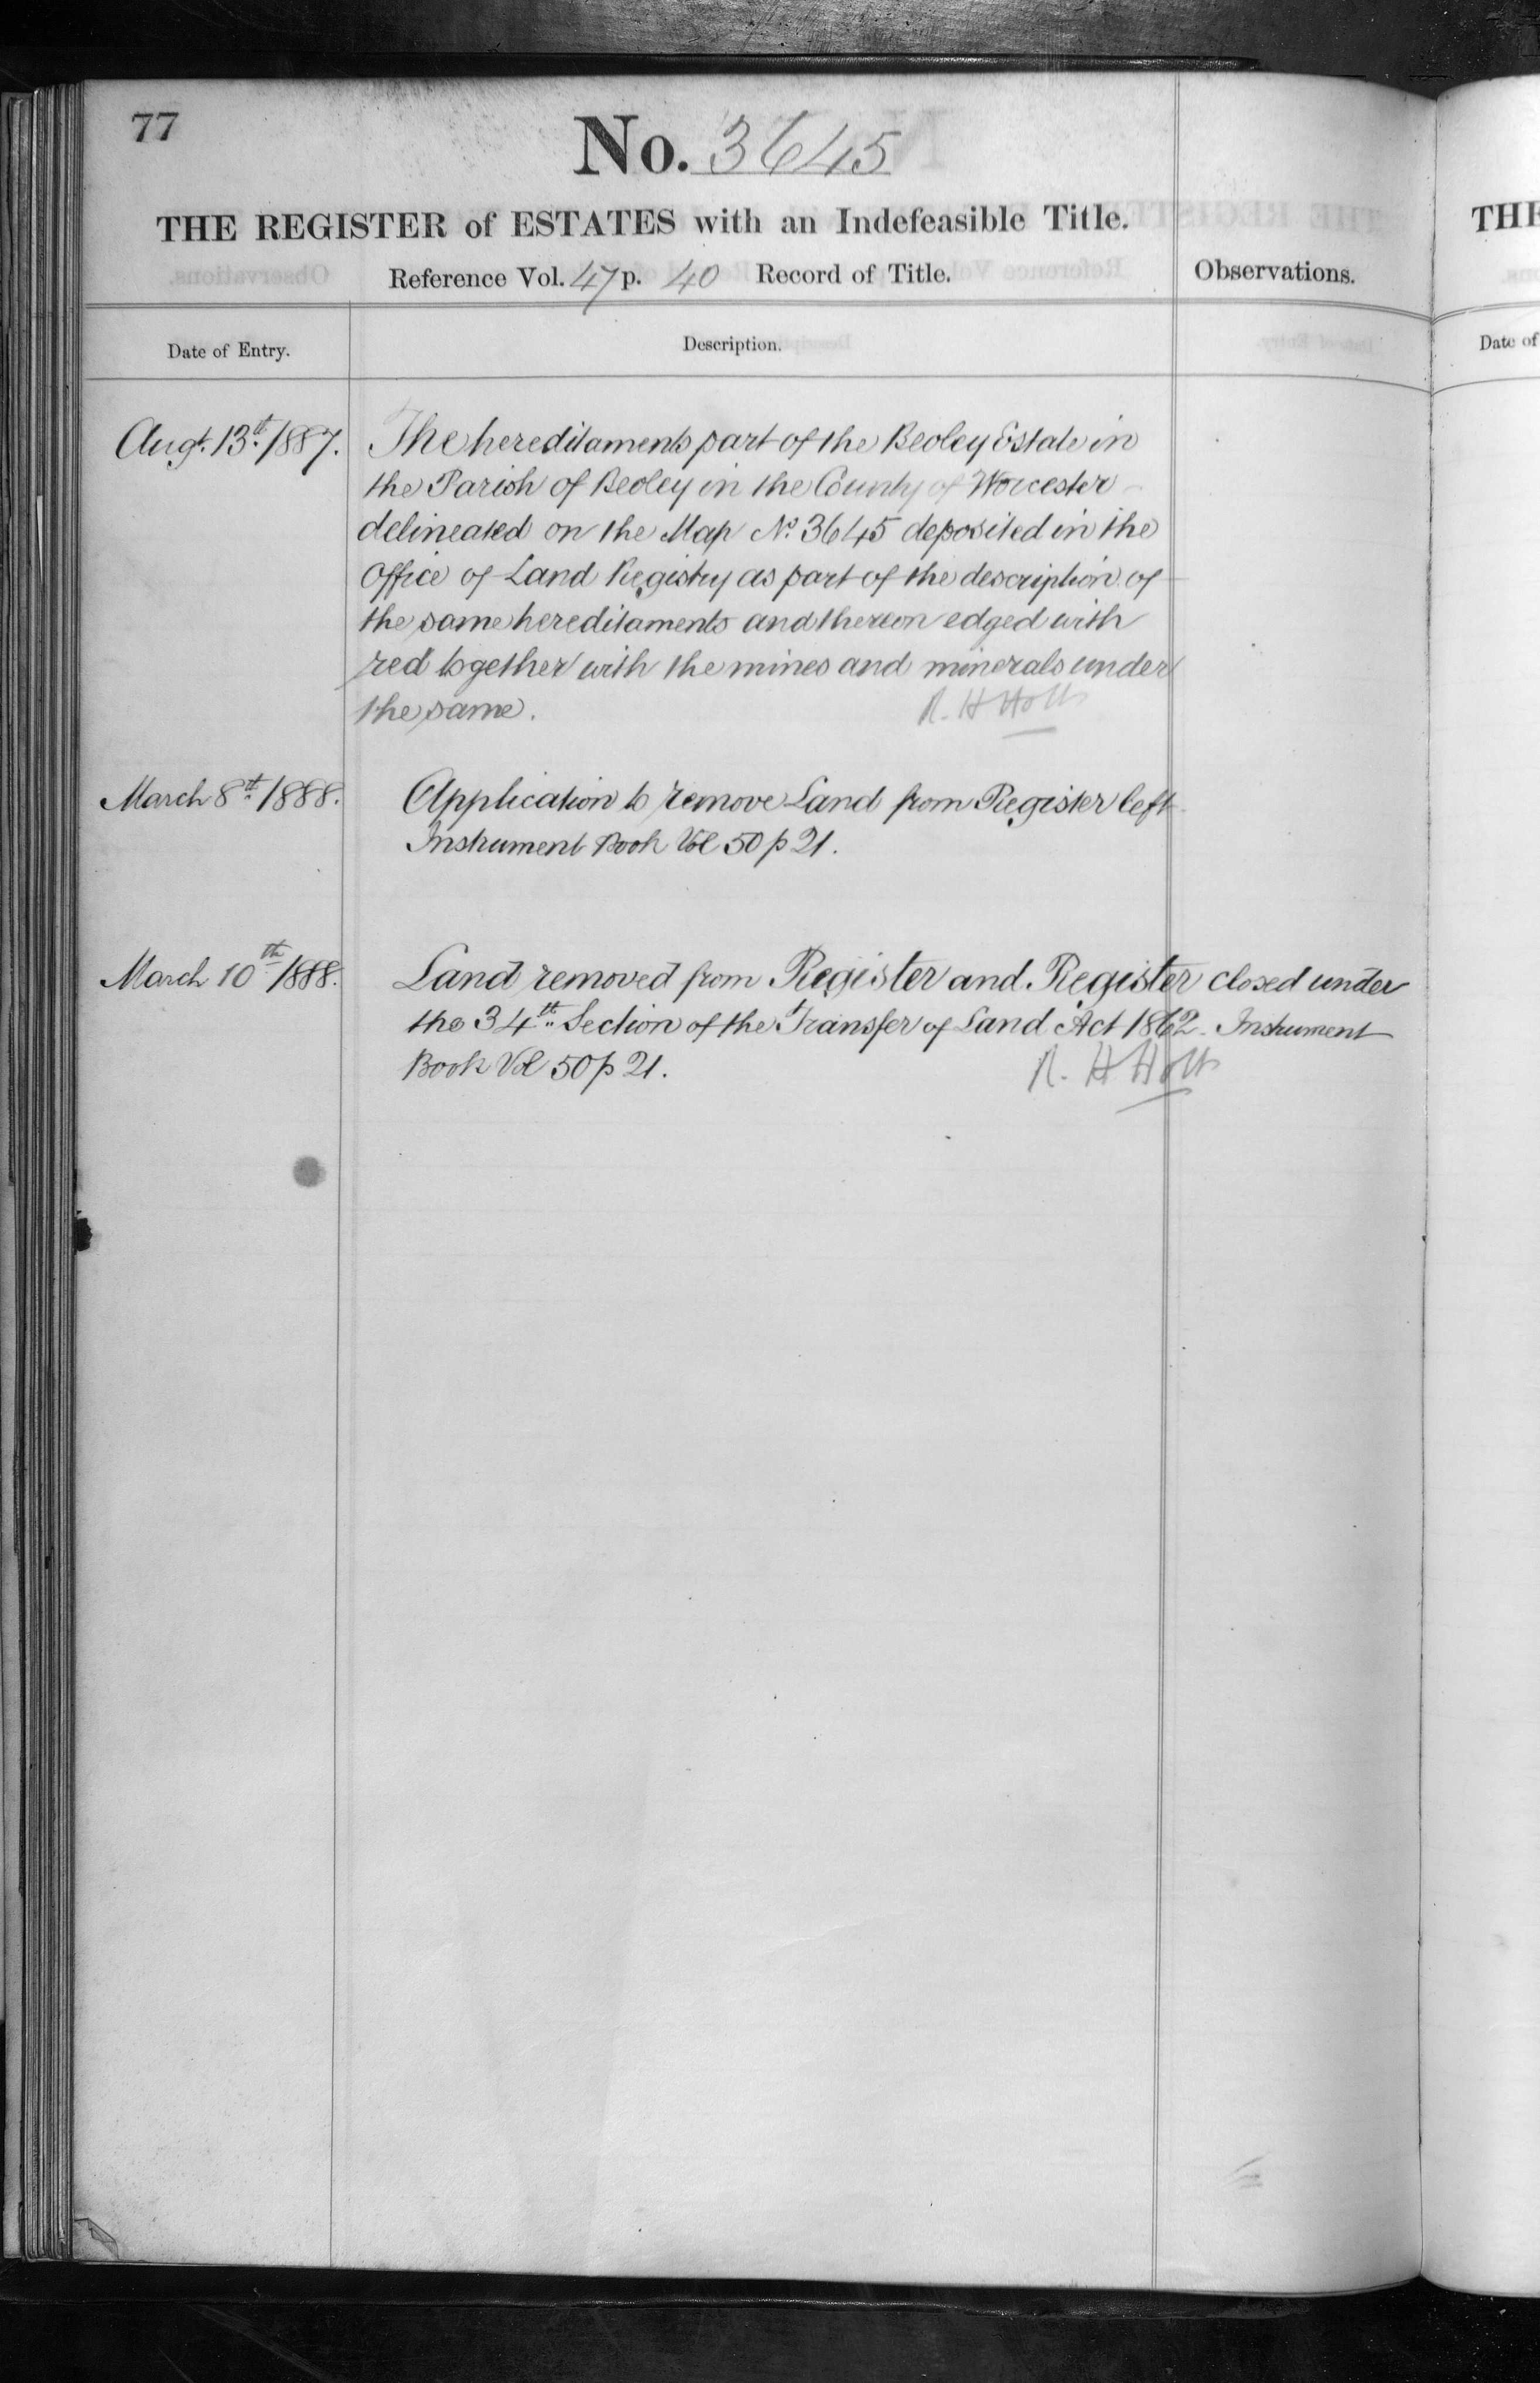 77
No. 3645
THE REGISTER of ESTATES with an Indefeasible Title.
Reference Vol. 47 p. 40 Record of Title.
Observations.
Date of Entry.
Description.
Augt. 13th 1887.
The hereditaments part of the Beoley Estate in
the Parish of Beoley in the County of Worcester
delineated on the Map No. 3645 deposited in the
Office of Land Registry as part of the description of
the same hereditaments and thereon edged with
red together with the mines and minerals under
the same.
R. H Holt
March 8th 1888.
Application to remove Land from Register left
Instrument Book Vol 50 p 21.
March 10th 1888.
Land removed from Register and Register closed under
the 34th Section of the Transfer of Land Act 1862. Instrument
Book Vol 50 p 21.
R. H. Holt
THE
Date of